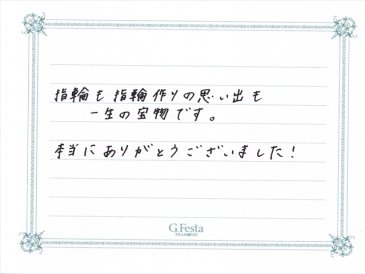 指輪も指輪作りの思い出も
一生の宝物です。
本当にありがとうございました！
G.Festa
DIAMOND